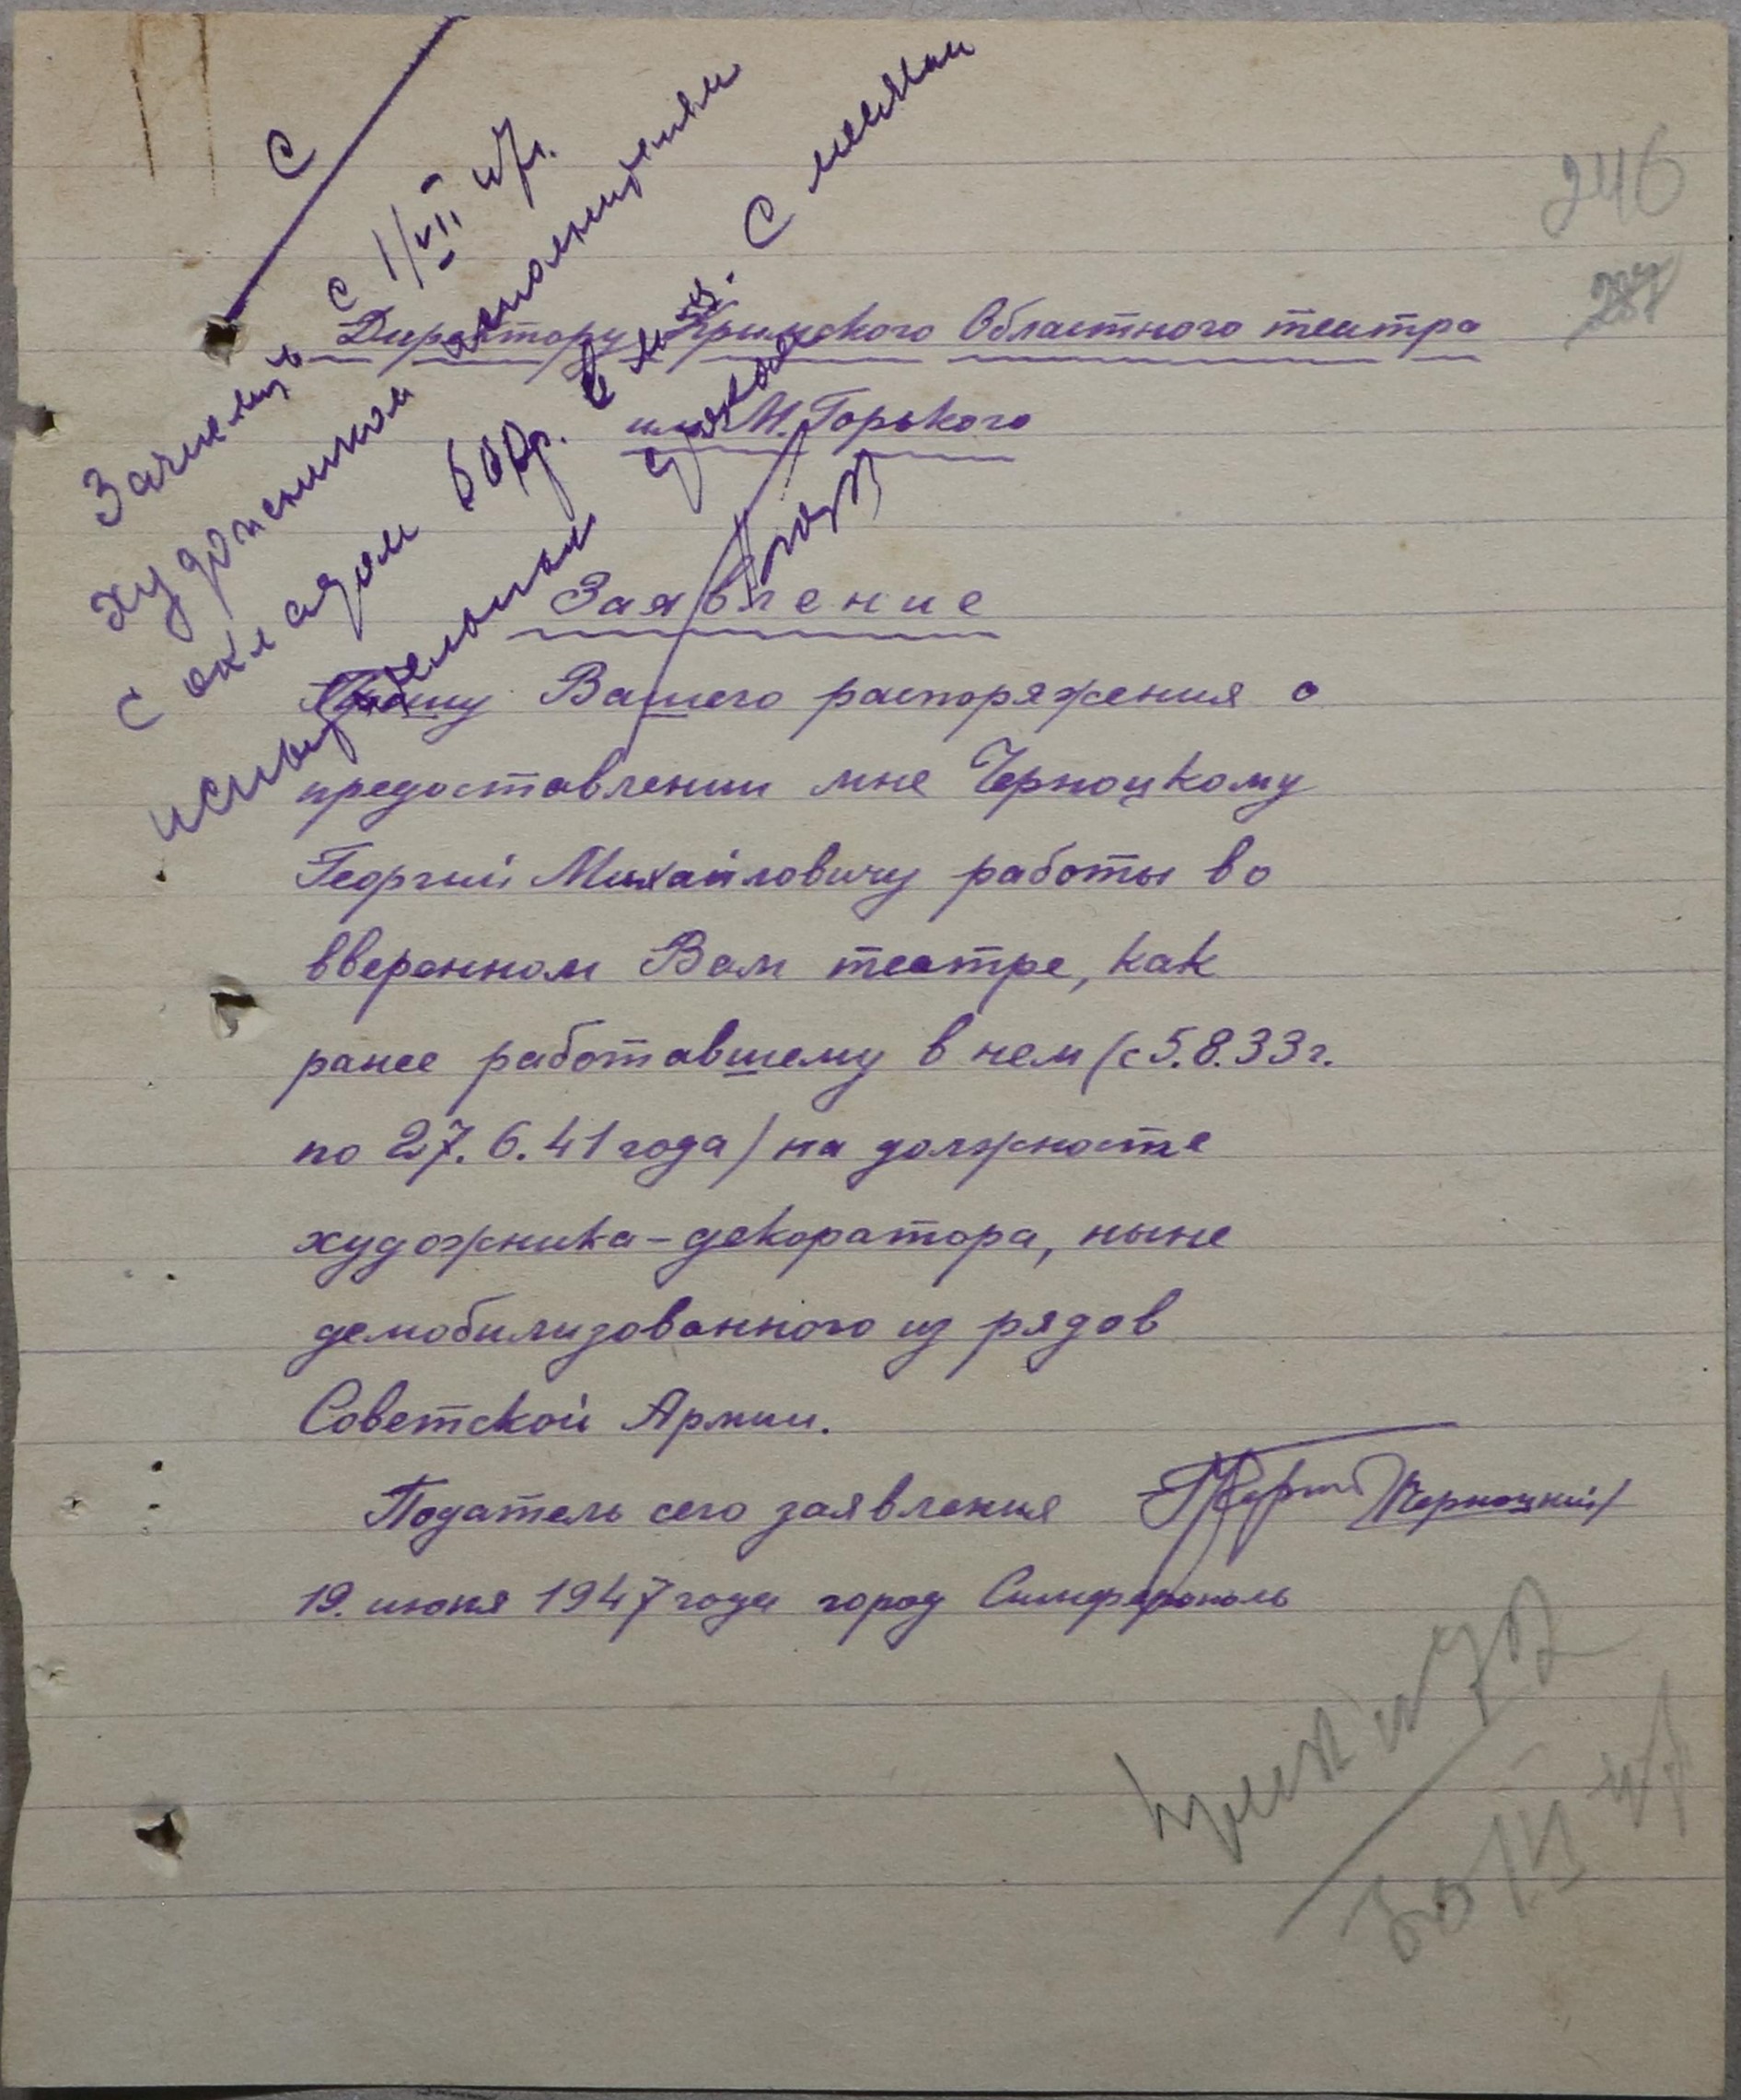 246
287
Зачислить с 1/VII 47г.
художником исполнителем
с окладом 600р. в м-ц. С месячн
испытательным сроком
Директору Крымского Областного театра
им. М. Горького
Заявление
Прошу Вашего распоряжения о
предоставлении мне Черноцкому
Георгий Михайловичу работы во
вверенном Вам театре, как
ранее работавшему в нем (с 5.8.33г.
по 27.6.41 года) на должносте
художника-декоратора, ныне
демобилизованного из рядов
Советской Армии.
Податель сего заявления (Черноцкий)
19. июня 1947 года город Симферополь